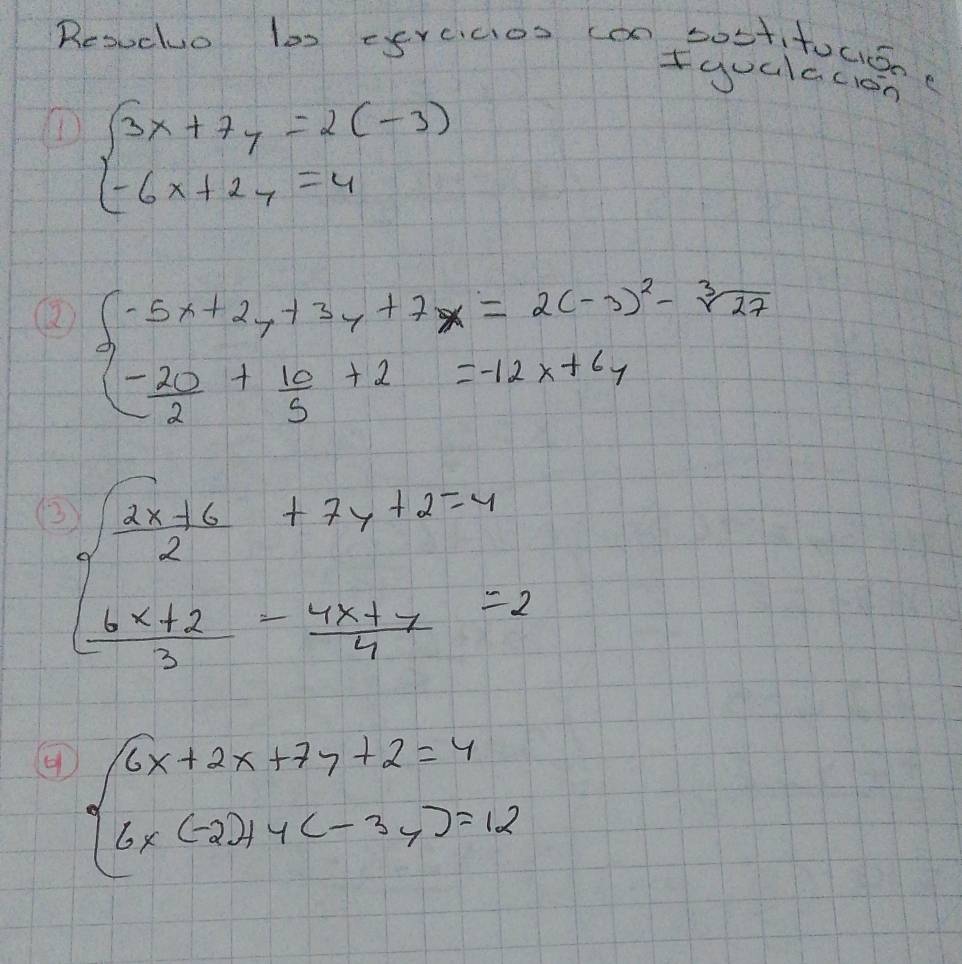 Resuelvo los ejercicios con sostitución e
Igualación
① 3x + 7y = 2(-3)
-6x + 2y = 4
② -5x + 2y + 3y + 7x = 2(-3)² - ∛27
-20/2 + 10/5 + 2 = -12x + 6y
③ (2x+6)/2 + 7y + 2 = 4
(6x+2)/3 - (4x+y)/4 = 2
④ 6x + 2x + 7y + 2 = 4
6x(-2) + 4(-3y) = 12